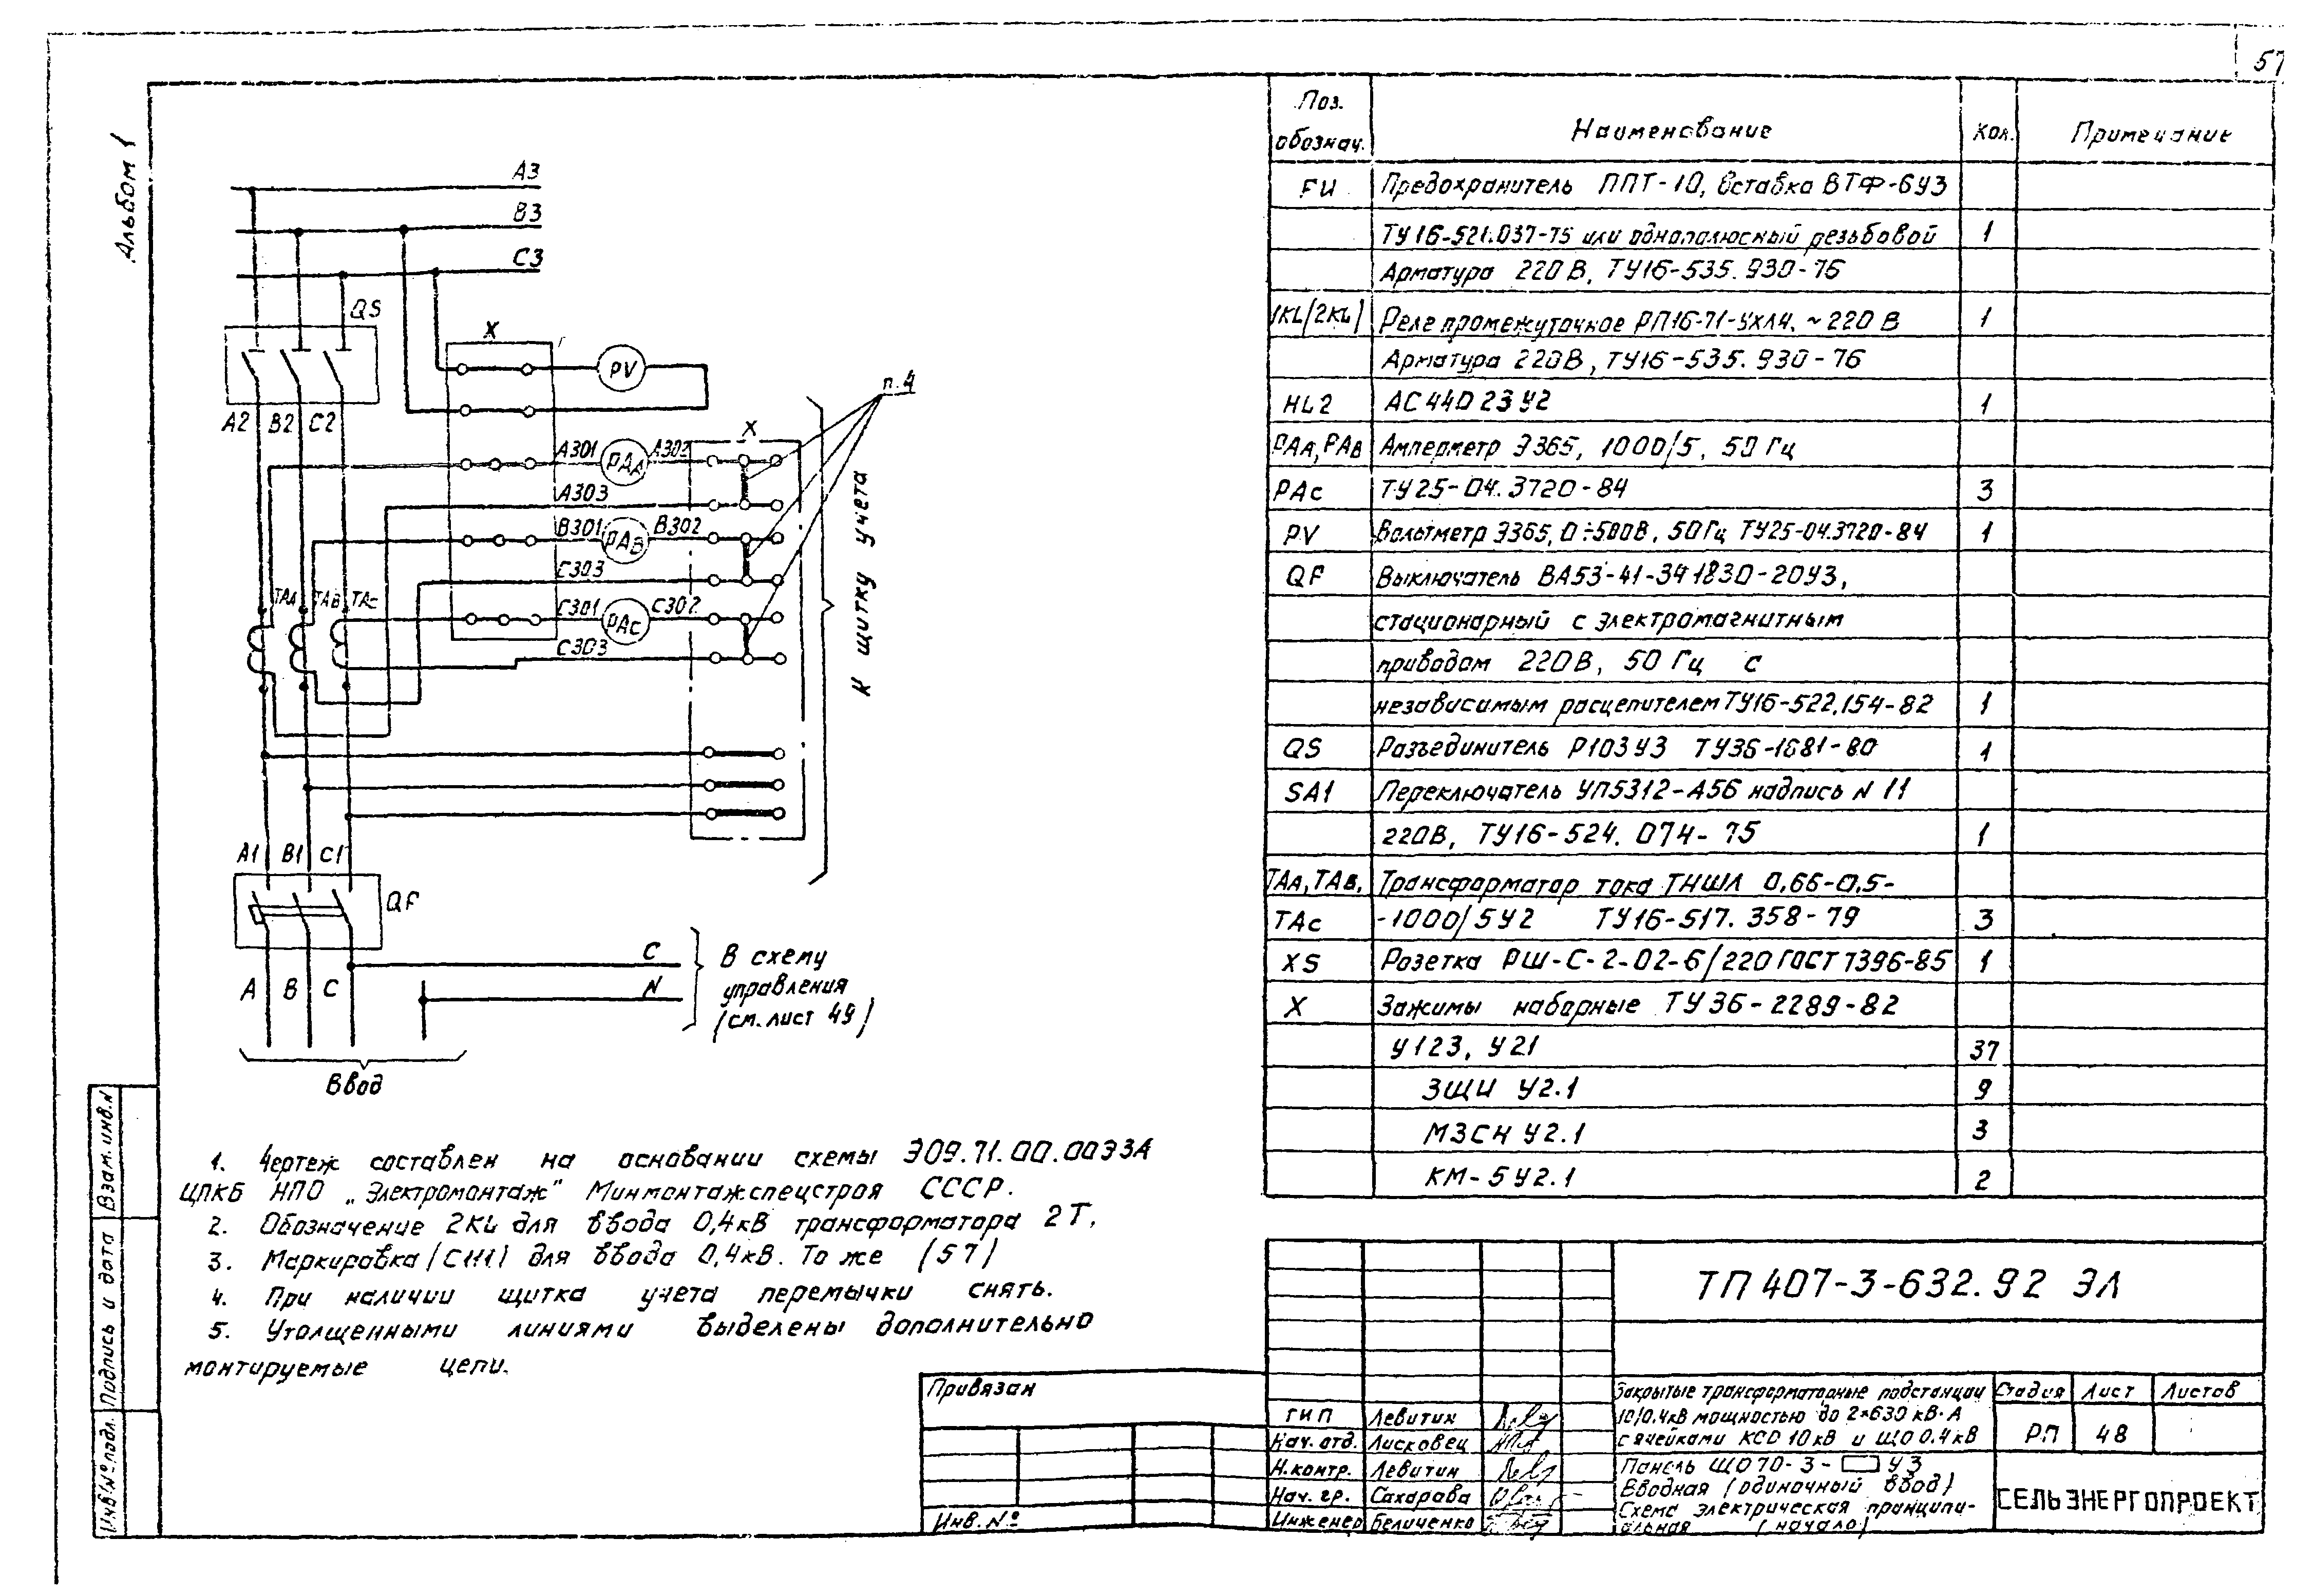 57
Альбом 1
А3
В3
С3
QS
X
PV
п.4
А2 В2 С2
X
А301 РАА А302
А303
В301 РАВ В302
С303
ТАА ТАВ ТАс
С301 РАс С302
С303
К щитку учета
А1 В1 С1
QF
С
N
В схему
управления
(см. лист 49)
А В С
Ввод
1. Чертеж составлен на основании схемы Э09.71.00.00ЭЗА
ЦПКБ НПО „Электромонтаж" Минмонтажспецстроя СССР.
2. Обозначение 2KL для ввода 0,4кВ трансформатора 2Т.
3. Маркировка (С111) для ввода 0,4кВ. То же (57)
4. При наличии щитка учета перемычки снять.
5. Утолщенными линиями выделены дополнительно
монтируемые цепи.
Поз. обознач. Наименование Кол. Примечание
FU Предохранитель ППТ-10, вставка ВТФ-6У3
ТУ16-521.037-75 или однополюсный резьбовой 1
Арматура 220В, ТУ16-535.930-76
1KL(2KL) Реле промежуточное РП16-71-УХЛ4, ~220В 1
Арматура 220В, ТУ16-535.930-76
HL2 АС44023У2 1
РАА, РАВ Амперметр Э365, 1000/5, 50 Гц
РАс ТУ25-04.3720-84 3
PV Вольтметр Э365, 0÷500В, 50Гц ТУ25-04.3720-84 1
QF Выключатель ВА53-41-341830-20У3,
стационарный с электромагнитным
приводом 220В, 50 Гц с
независимым расцепителем ТУ16-522.154-82 1
QS Разъединитель Р103У3 ТУ36-1681-80 1
SA1 Переключатель УП5312-А56 надпись N 11
220В, ТУ16-524.074-75 1
ТАА, ТАВ, Трансформатор тока ТНШЛ 0,66-0,5-
ТАс -1000/5У2 ТУ16-517.358-79 3
XS Розетка РШ-С-2-02-6/220 ГОСТ 7396-85 1
X Зажимы наборные ТУ36-2289-82
У123, У21 37
ЗЩИ У2.1 9
МЗСН У2.1 3
КМ-5У2.1 2
ТП 407-3-632.92 ЭЛ
Закрытые трансформаторные подстанции
10/0.4кВ мощностью до 2×630 кВ·А
с ячейками КСО 10кВ и ЩО 0.4кВ
Стадия Лист Листов
РП 48
Панель ЩО70-3- У3
Вводная (одиночный ввод)
Схема электрическая принципи-
альная (начало)
СЕЛЬЭНЕРГОПРОЕКТ
ГИП Левитин
Нач. отд. Лисковец
Н.контр. Левитин
Нач. гр. Сахарова
Инженер Беличенко
Привязан
Инв. №
Взам. инв. N
Подпись и дата
Инв. № подл.